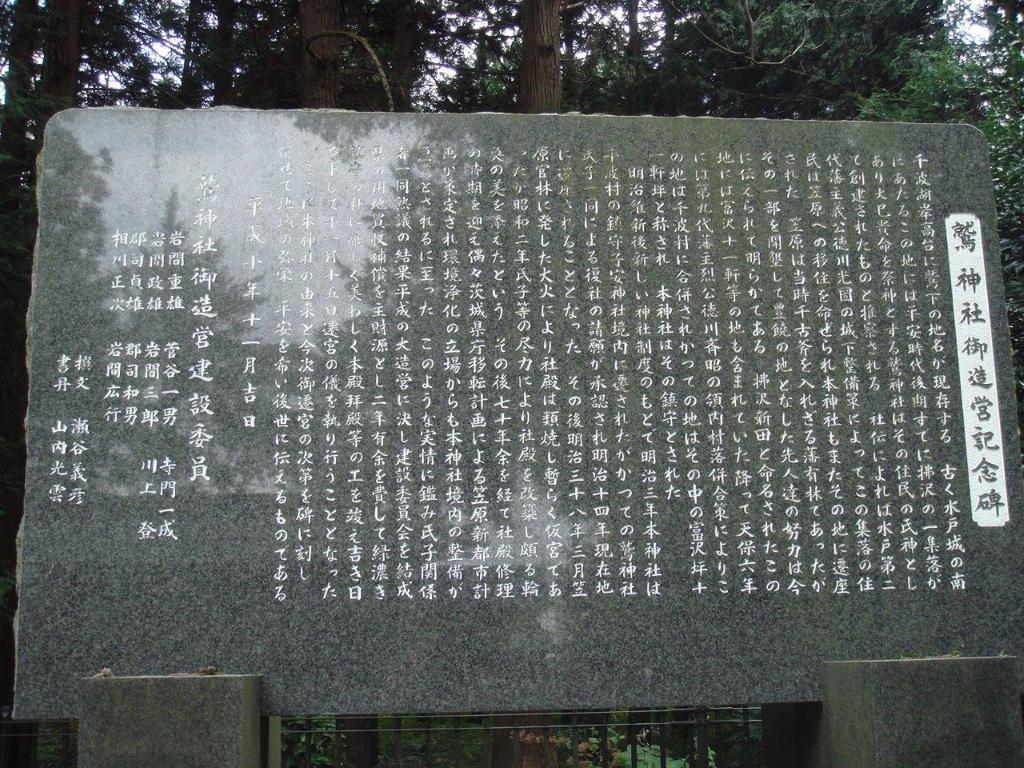 鷲神社御造営記念碑
千波湖岸高台に鷲下の地名が現存する 古く水戸城の南
にあたるこの地には平安時代後期すでに拂沢の一集落が
あり大己貴命を祭神とする鷲神社はその住民の氏神とし
て創建されたものと推察される 社伝によれば水戸第二
代藩主義公徳川光圀の城下整備策によってこの集落の住
民は笠原への移住を命ぜられ本神社もまたその地に遷座
された 笠原は当時千古斧を入れざる藩有林であったが
その一部を開墾して豊饒の地となした先人達の努力は今
に伝えられて明らかである 拂沢新田と命名されたこの
地には富沢十一軒等の地も含まれていた降って天保六年
には第九代藩主烈公徳川斉昭の領内村落併合策によりこ
の地は千波村に合併されかつての地はその中の富沢坪十
一軒坪と称され 本神社はその鎮守とされた
明治維新後新しい神社制度のもとで明治三年本神社は
千波村の鎮守子安神社境内に遷されたがかつての鷲神社
氏子一同による復社の請願が承認され明治十四年現在地
に遷座されることとなった その後明治三十八年三月笠
原官林に発した大火により社殿は類焼し暫らく仮宮であ
ったが昭和二年氏子等の尽力により社殿を改築し頗る輪
奐の美を添えたという その後七十年余を経て社殿修理
の時期を迎え偶々茨城県庁移転計画による笠原新都市計
画が策定され環境浄化の立場からも本神社境内の整備が
とされるに至った このような実情に鑑み氏子関係
者一同熟議の結果平成の大造営に決し建設委員会を結成
県の用地買収補償を主財源とし二年有余を費して緑濃き
の杜に厳しく美わしく本殿拝殿等の工を竣え吉き日
を卜して十一月十五日遷宮の儀を執り行うこととなった
ここに本神社の由来と今次御遷宮の次第を碑に刻し
併せて地域の弥栄 平安を希い後世に伝えるものである
平成十年十一月吉日
鷲神社御造営建設委員
岩間重雄 菅谷一男 寺門一成
岩間政雄 岩間三郎 川上 登
郡司貞雄 郡司和男
相川正次 岩間広行
撰文 瀬谷義彦
書丹 山内光雲